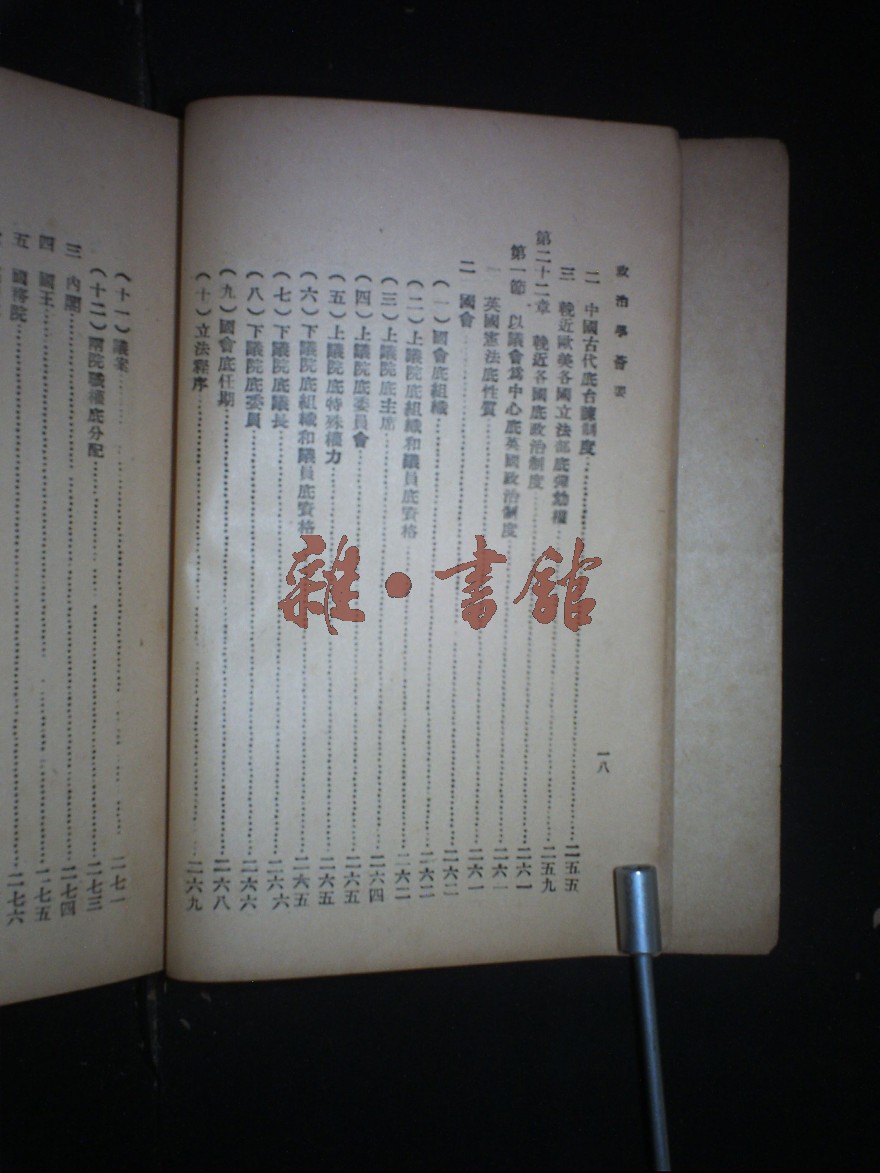 政治學薈要
一八
二 中國古代底台諫制度……二五五
三 輓近歐美各國立法部底彈劾權……二五九
第二十二章 輓近各國底政治制度……二六一
第一節 以議會爲中心底英國政治制度……二六一
一 英國憲法底性質……二六一
二 國會……二六二
(一)國會底組織……二六二
(二)上議院底組織和議員底資格……二六二
(三)上議院底主席……二六四
(四)上議院底委員會……二六五
(五)上議院底特殊權力……二六五
(六)下議院底組織和議員底資格……二六五
(七)下議院底議長……二六六
(八)下議院底委員……二六六
(九)國會底任期……二六八
(十)立法程序……二六九
(十一)議案……二七一
(十二)兩院職權底分配……二七三
三 內閣……二七四
四 國王……二七五
五 國務院……二七六
雜·書館